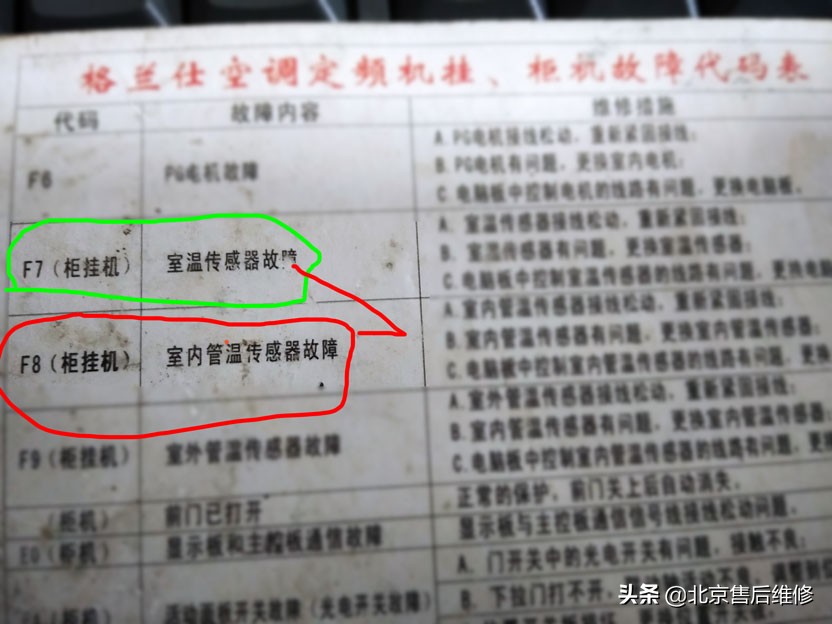 格兰仕空调定频机挂、柜机故障代码表
代码 故障内容 维修措施
F6 PG电机故障
A.PG电机接线松动，重新紧固接线；
B.PG电机有问题，更换室内电机；
C.电脑板中控制电机的线路有问题，更换电脑板。
F7（柜挂机） 室温传感器故障
A.室温传感器接线松动，重新紧固接线；
B.室温传感器有问题，更换室温传感器；
C.电脑板中控制室温传感器的线路有问题，更换电脑
F8（柜挂机） 室内管温传感器故障
A.室内管温传感器接线松动，重新紧固接线；
B.室内管温传感器有问题，更换室内管温传感器；
C.电脑板中控制室内管温传感器的线路有问题，更换
F9（柜挂机） 室外管温传感器故障
A.室外管温传感器接线松动，重新紧固接线；
B.室内管温传感器有问题，更换室内管温传感器
C.电脑板中控制室内管温传感器的线路有问题，更
（柜机） 前门已打开 正常的保护，前门关上后自动消失。
E0（柜机） 显示板和主控板通信故障 显示板与主控板通信信号线接线松动问题。
（柜机） 活动面板开关故障（光电开关故障）
A.门开关中的光电开关有问题，接触不良；
B.下拉门打不开，
头条 @北京售后维修